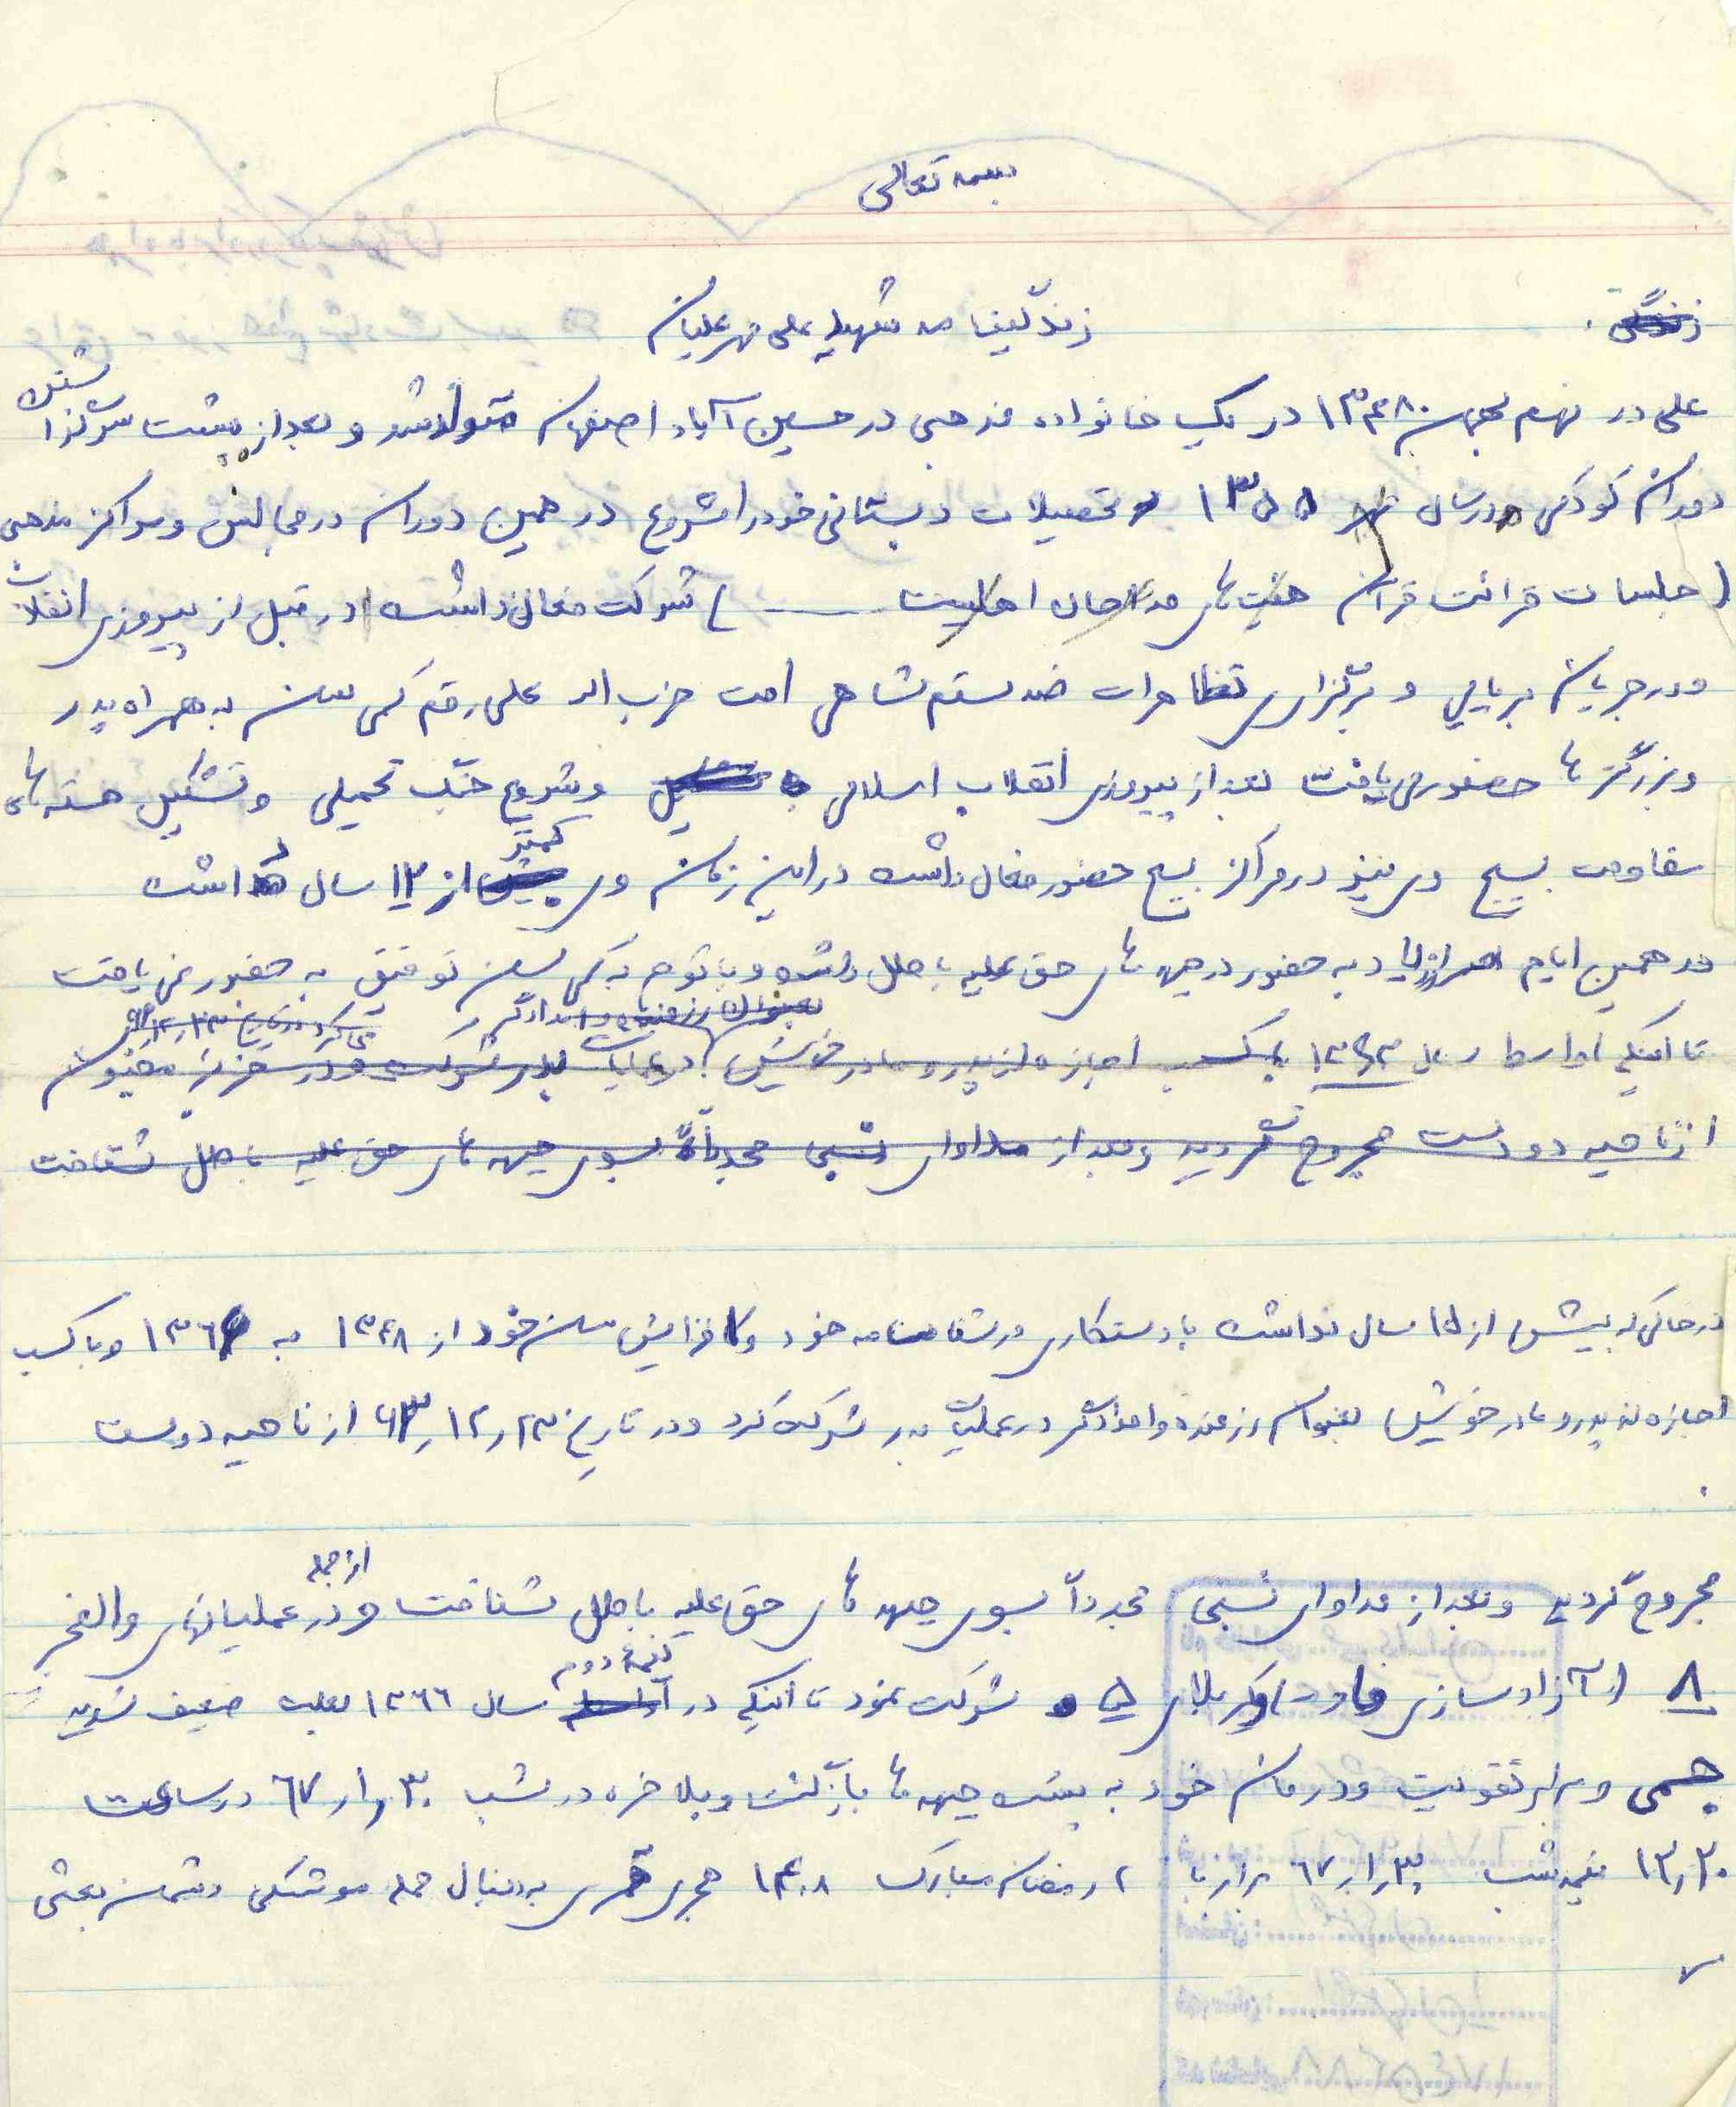 بسمه تعالی
زندگینامه شهید علی مهرعلیان
علی در نهم بهمن ۱۳۴۸ در یک خانواده مذهبی در حسین آباد اصفهان متولد شد و بعد از پشت سر گذاشتن
دوران کودکی در سال ۱۳۵۵ تحصیلات دبستانی خود را شروع در همین دوران در مجالس و مراکز مذهبی
(جلسات قرائت قرآن هیئت های مداحان اهلبیت ــــ) شرکت فعال داشت در قبل از پیروزی انقلاب
و در جریان برپایی و برگزاری تظاهرات ضد ستم شاهی امت حزب اله علی رقم کمی سن به همراه پدر
و بزرگترها حضور می یافت بعد از پیروزی انقلاب اسلامی و شروع جنگ تحمیلی و تشکیل هسته های
مقاومت بسیج وی نیز در مراکز بسیج حضور فعال داشت در این زمان وی کمتر از ۱۲ سال داشت
در همین ایام به حضور در جبهه های حق علیه باطل داشت و با توجه به کمی سن توفیق به حضور نمی یافت
تا اینکه اواسط سال ۱۳۶۳ با کسب اجازه از پدر و مادر خویش بعنوان رزمنده و امدادگر در عملیات بدر شرکت
از ناحیه دو دست مجروح گردید و بعد از مداوای نسبی مجدداً بسوی جبهه های حق علیه باطل شتافت
در حالی که بیش از ۱۵ سال نداشت با دستکاری در شناسنامه خود و افزایش سن خود از ۱۳۴۸ به ۱۳۴۶ و با کسب
اجازه از پدر و مادر خویش بعنوان رزمنده و امدادگر در عملیات بدر شرکت کرد و در تاریخ ۲۳ر۱۲ر۶۳ از ناحیه دو دست
مجروح گردید و بعد از مداوای نسبی مجدداً بسوی جبهه های حق علیه باطل شتافت و از جمله در عملیاتهای والفجر
۸ (آزادسازی فاو) و کربلای ۵ شرکت نمود تا اینکه در نیمه دوم سال ۱۳۶۶ بعلت ضعیف شدید
جسمی و برای تقویت و درمان خود به پشت جبهه ها بازگشت و بلاخره در شب ۳۰ر۱ر۶۷ در ساعت
۱۲ر۳۰ نیمه شب ۳۰ر۱ر۶۷ برابر با ۲ رمضان مبارک ۱۴۰۸ هجری قمری به دنبال حمله موشکی دشمن بعثی